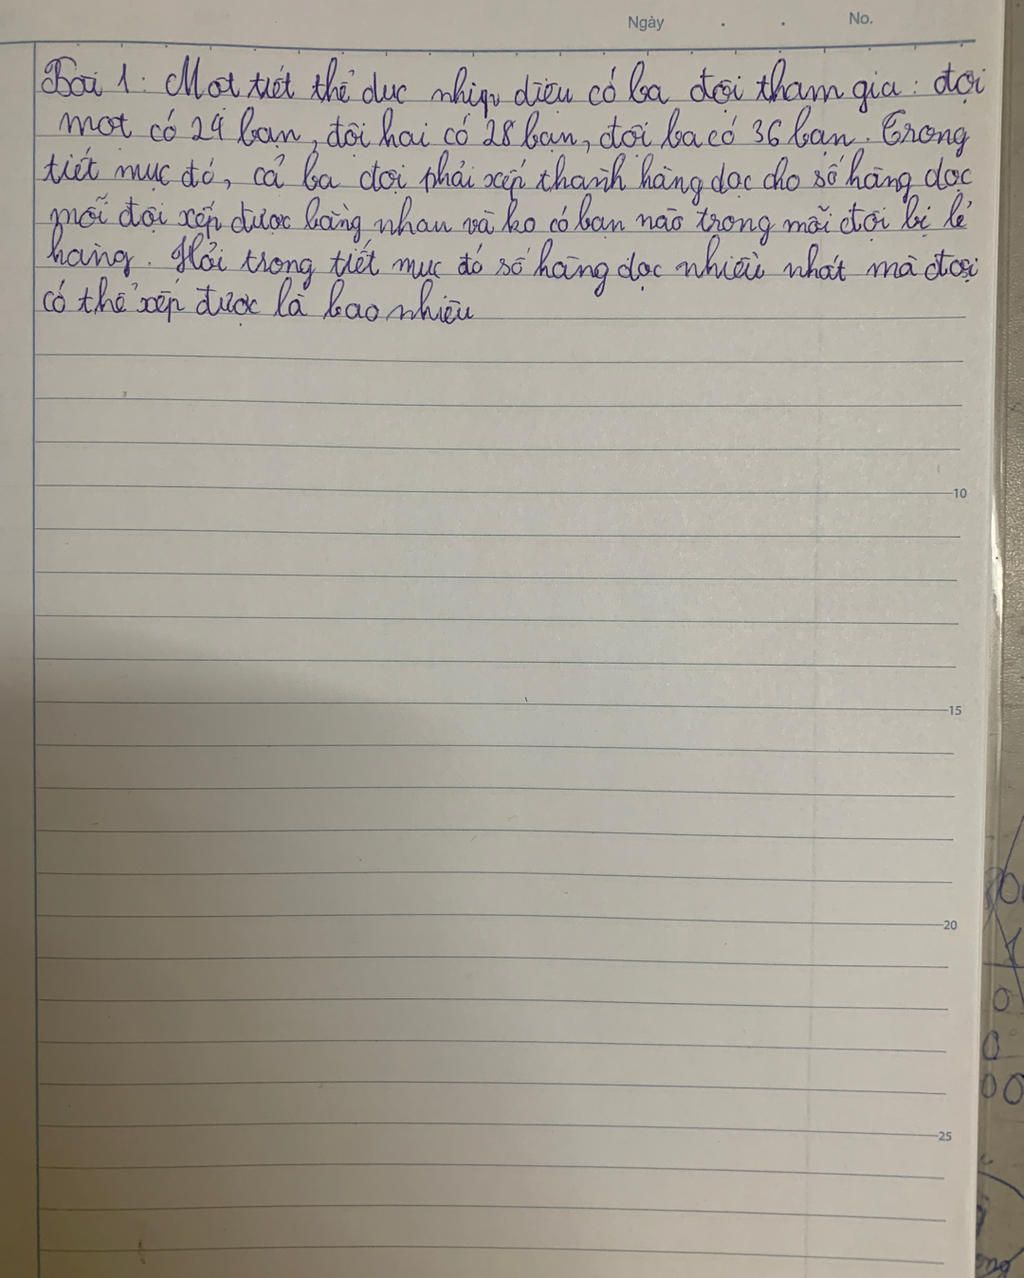 Ngày . . No.
Bài 1: Một tiết thể dục nhịp điệu có ba đội tham gia: đội
một có 24 bạn, đội hai có 28 bạn, đội ba có 36 bạn. Trong
tiết mục đó, cả ba đội phải xếp thành hàng dọc cho số hàng dọc
mỗi đội xếp được bằng nhau và ko có bạn nào trong mỗi đội bị lẻ
hàng. Hỏi trong tiết mục đó số hàng dọc nhiều nhất mà đội
có thể xếp được là bao nhiêu
10
15
20
25